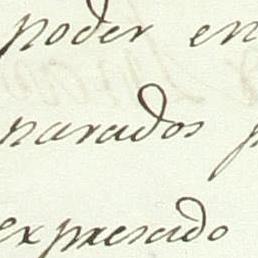 poder en
parados p
expresado